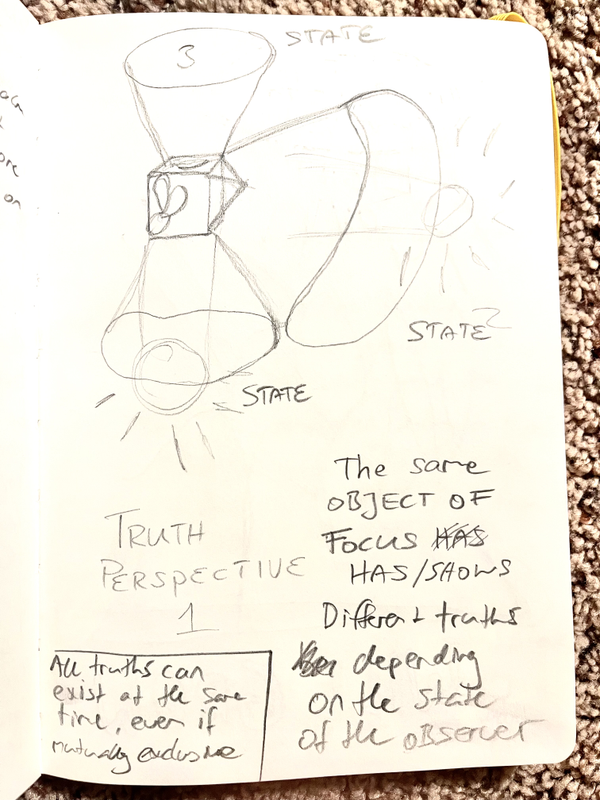 3
STATE
STATE 2
STATE
TRUTH
PERSPECTIVE
1
The same
OBJECT OF
FOCUS HAS
HAS/SHOWS
Different truths
depending
on the state
of the OBSERVER
All truths can
exist at the same
time, even if
mutually exclusive
ore
on